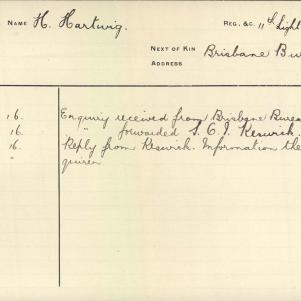 NAME H. Hartwig. REG., &C. 11th Light
NEXT OF KIN
ADDRESS Brisbane Bu
16. Enquiry received from Brisbane Bureau
16. " forwarded S.O.I. Keswick.
16. Reply from Keswick. Information the
" quirer